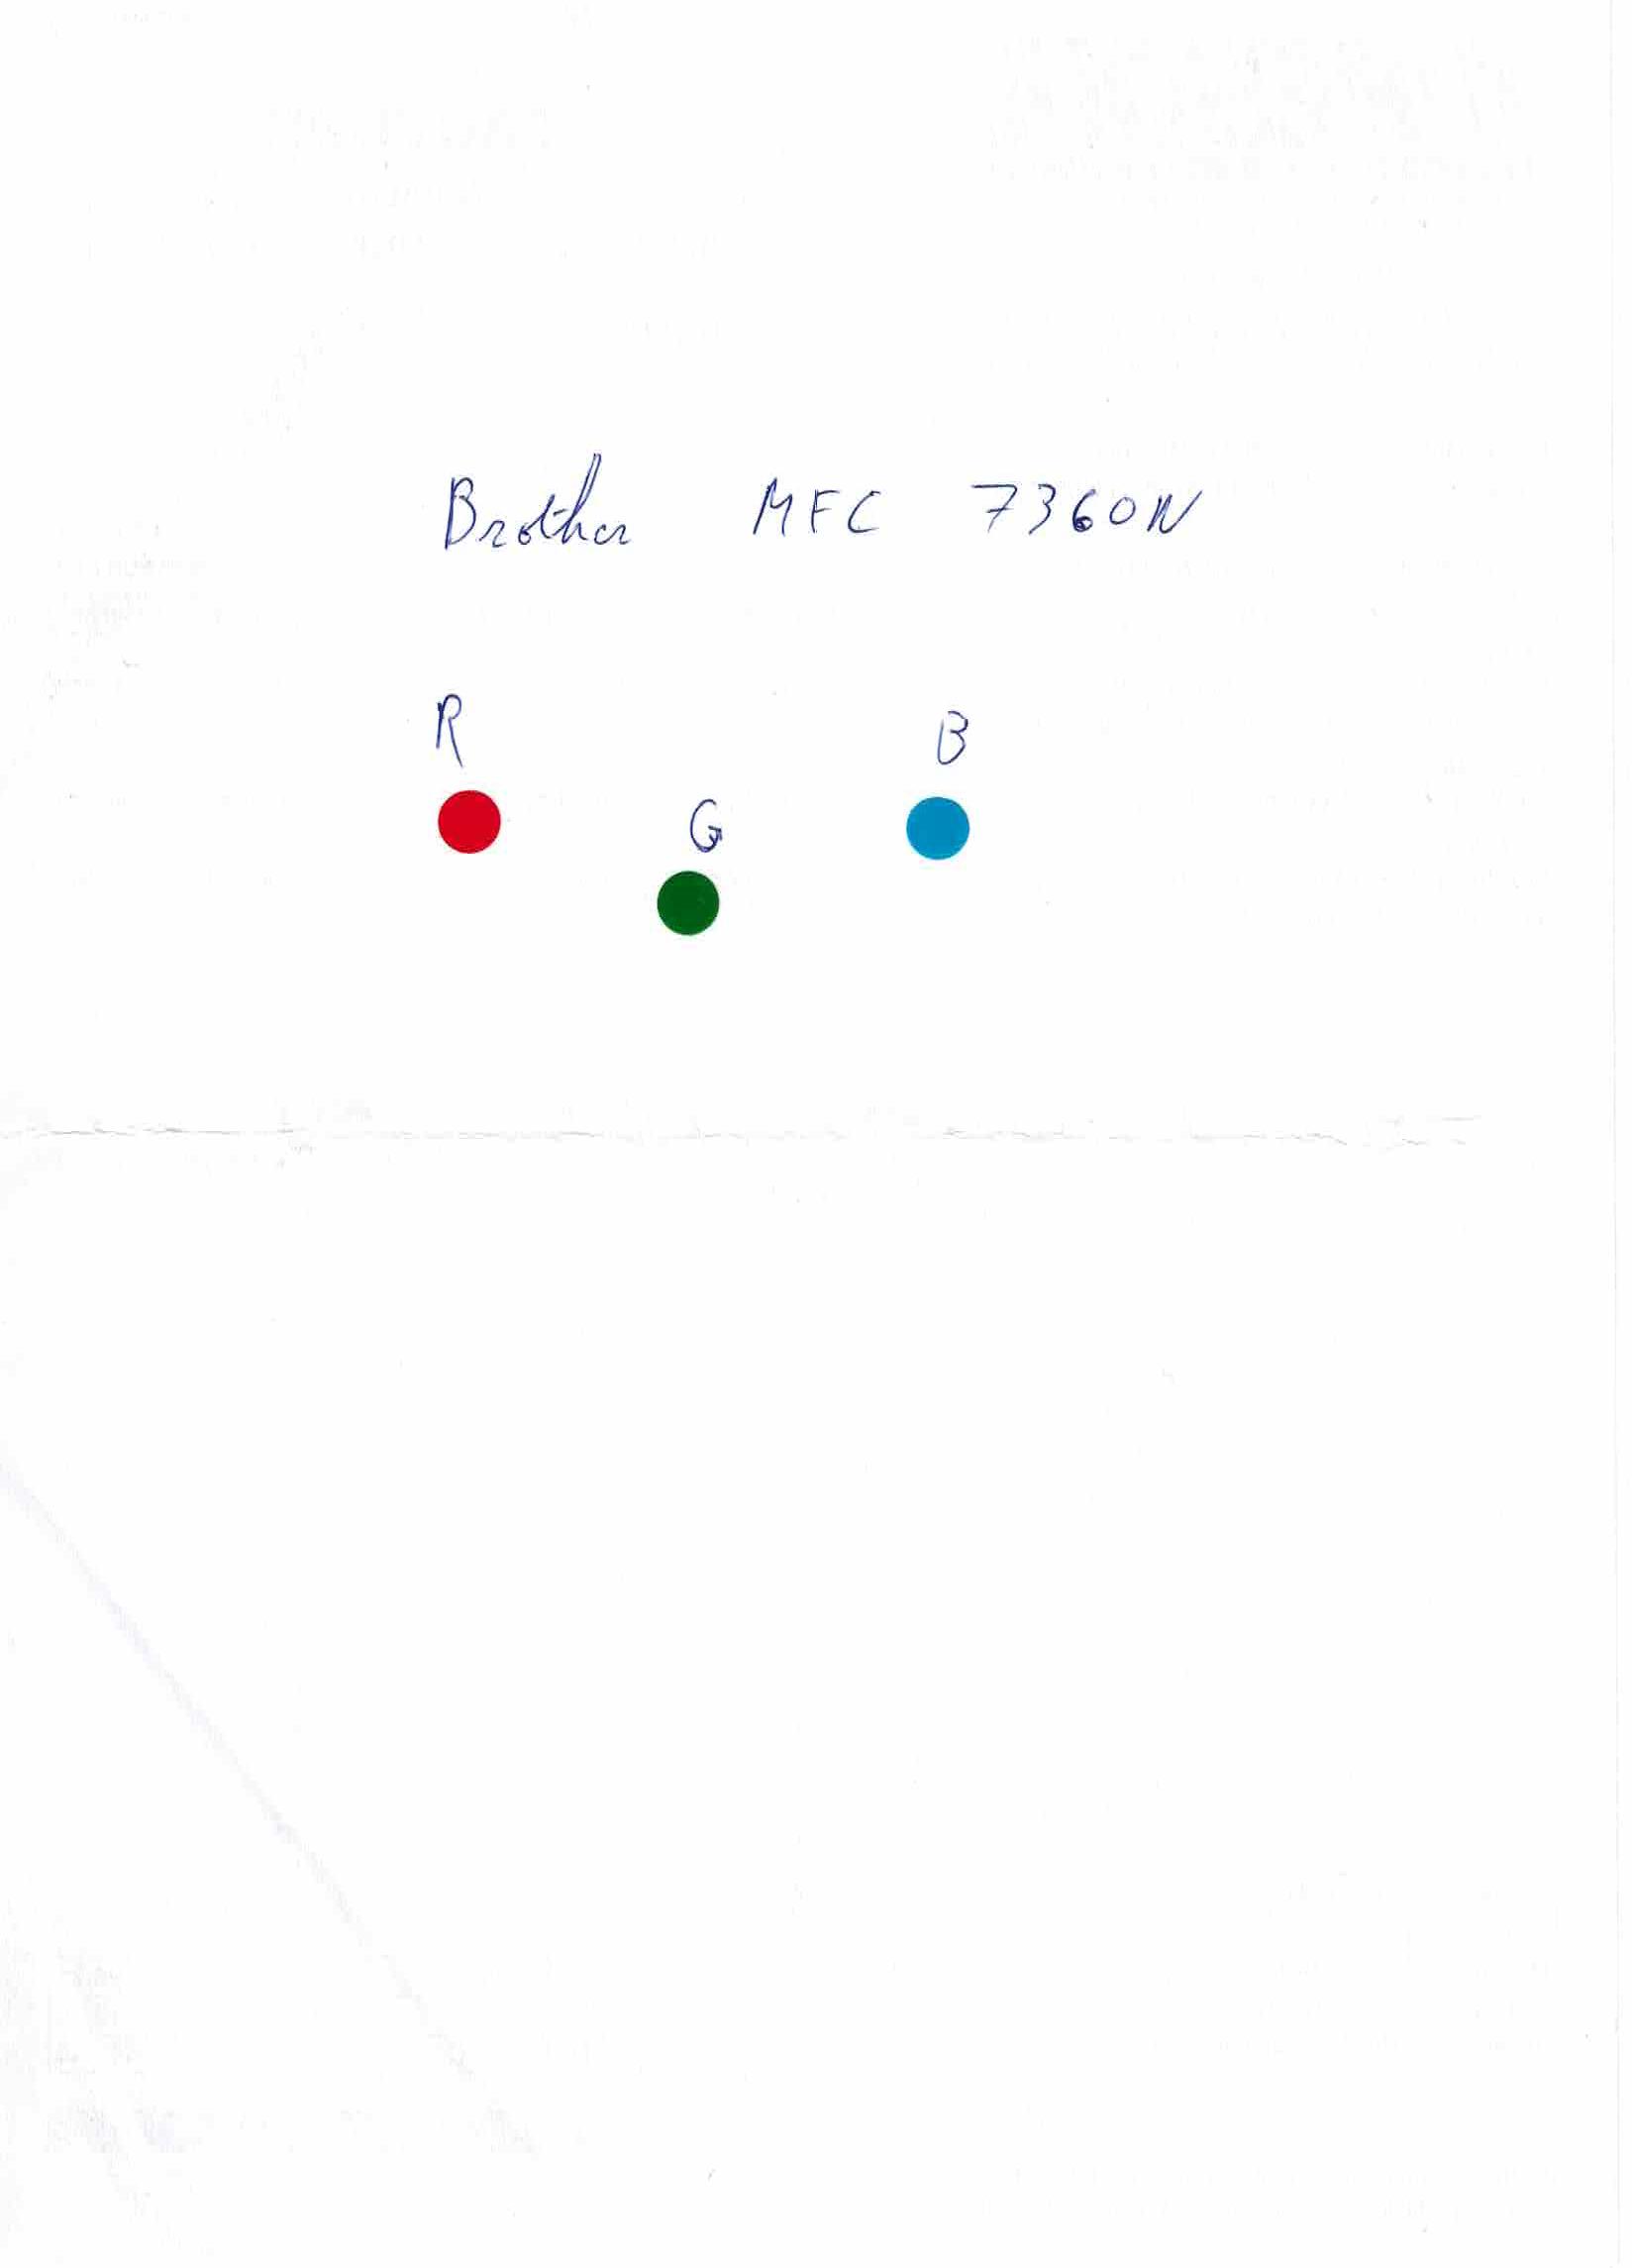 Brother MFC 7360N
R
B
G